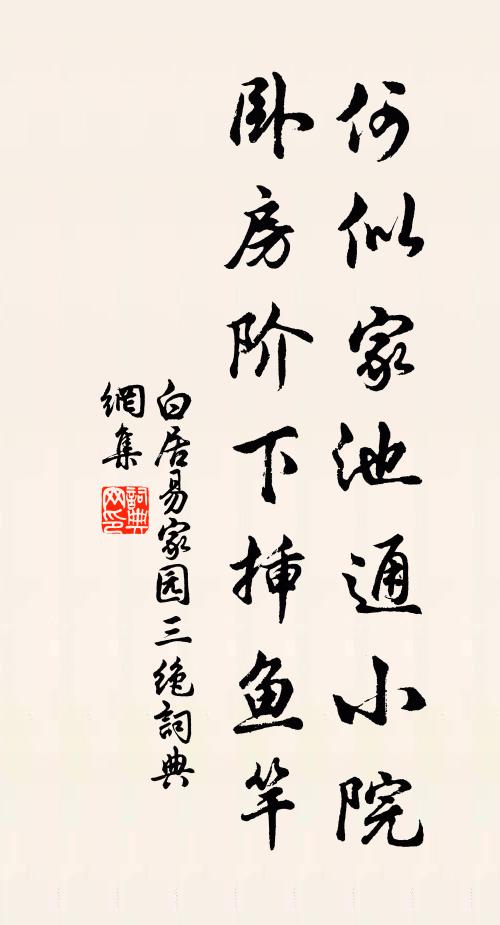 何似家池通小院
卧房阶下插鱼竿
白居易家园三绝詞典
網集
詞典網印